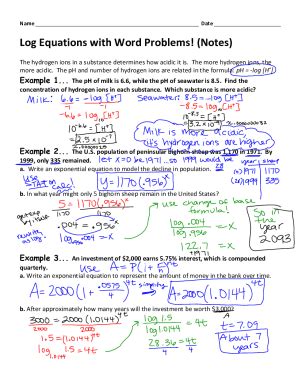 Name Date
Log Equations with Word Problems! (Notes)
The hydrogen ions in a substance determines how acidic it is. The more hydrogen ions, the
more acidic. The pH and number of hydrogen ions are related in the formula: pH = -log [H⁺]
Example 1... The pH of milk is 6.6, while the pH of seawater is 8.5. Find the
concentration of hydrogen ions in each substance. Which substance is more acidic?
Milk: 6.6 = -log [H⁺] Seawater: 8.5 = -log [H⁺]
-6.6 = log [H⁺]
10^-6.6 = [H⁺]
2.5 × 10^-7
3.2 × 10^-9
Milk is more acidic,
it's hydrogen ions are higher
Example 2... The U.S. population of peninsular bighorn sheep was 1,170 in 1971. By
1999, only 335 remained. let x=0 be 1971... so 1999 would be 28
a. Write an exponential equation to model the decline in population.
y = 1170(.956)^x
b. In what year might only 5 bighorn sheep remain in the United States?
5 = 1170(.956)^x
1170 1170
.004 = .956^x
use change of base
formula!
log .004
log .956
= x
122.7 = x
+1971
So in
the year
2093
Example 3... An investment of $2,000 earns 5.75% interest, which is compounded
quarterly. use A = P(1 + r/n)^nt
a. Write an exponential equation to represent the amount of money in the account over time.
A = 2000(1 + .0575/4)^4t simplify A = 2000(1.0144)^4t
b. After approximately how many years will the investment be worth $3,000?
3000 = 2000(1.0144)^4t
2000 2000
1.5 = (1.0144)^4t
log 1.5
log 1.0144
= 4t
28.36 = 4t
4 4
t = 7.09
About 7
years